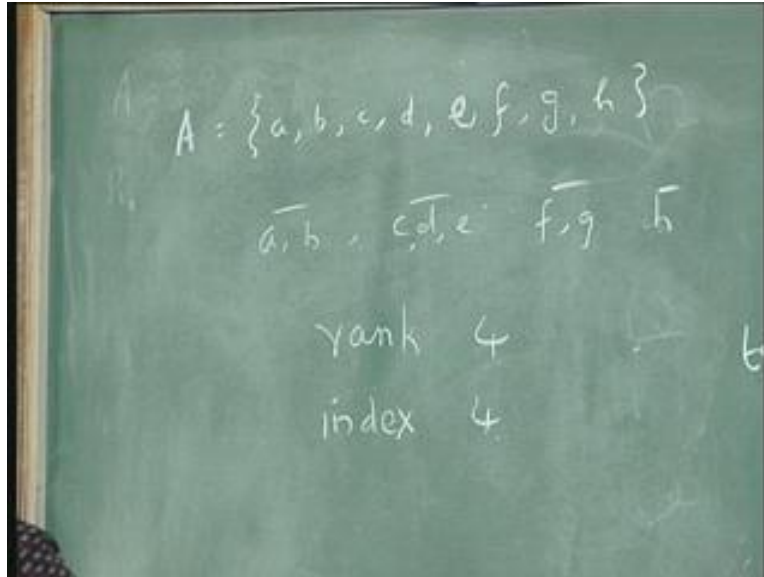 A = {a, b, c, d, e, f, g, h}
a, b , c, d, e f, g h
rank 4
index 4